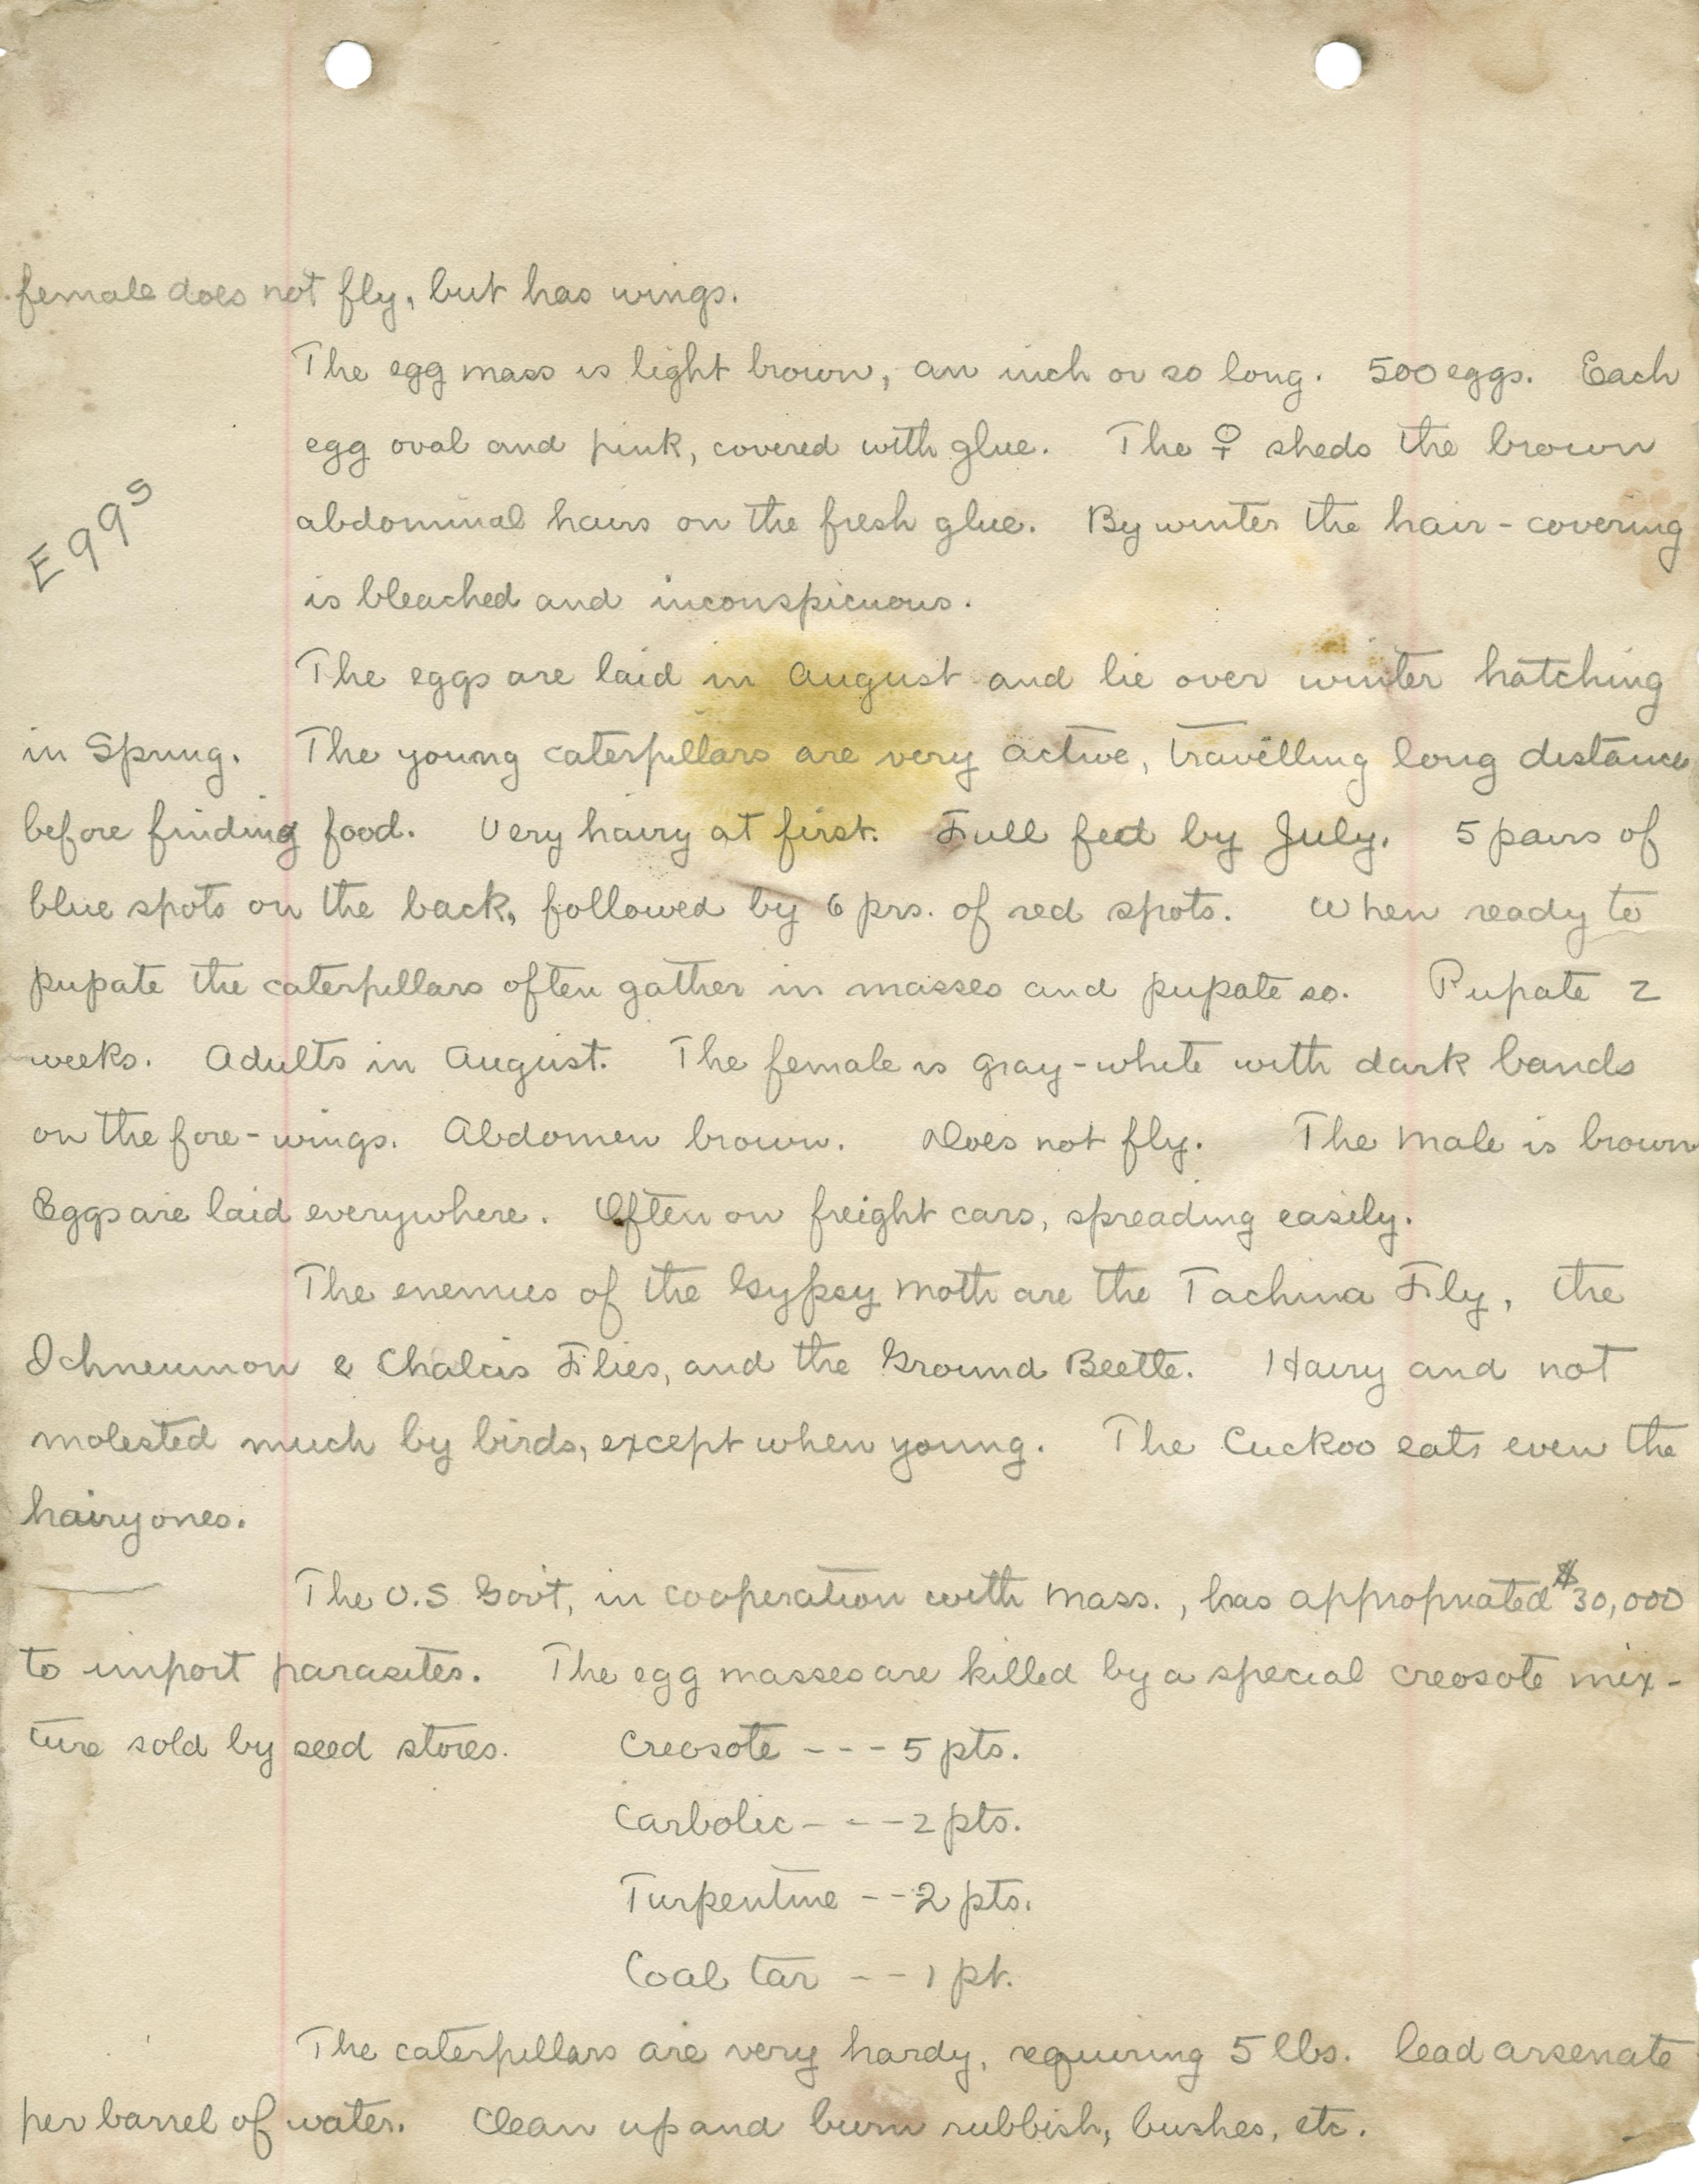 female does not fly, but has wings.
The egg mass is light brown, an inch or so long. 500 eggs. Each
egg oval and pink, covered with glue. The ♀ sheds the brown
abdominal hairs on the fresh glue. By winter the hair-covering
E99s
is bleached and inconspicuous.
The eggs are laid in August and lie over winter hatching
in Spring. The young caterpillars are very active, travelling long distance
before finding food. Very hairy at first. Full fed by July. 5 pairs of
blue spots on the back, followed by 6 prs. of red spots. When ready to
pupate the caterpillars often gather in masses and pupate so. Pupate 2
weeks. Adults in August. The female is gray-white with dark bands
on the fore-wings. Abdomen brown. Does not fly. The male is brown
Eggs are laid everywhere. Often on freight cars, spreading easily.
The enemies of the Gypsy Moth are the Tachina Fly, the
Ichneumon & Chalcis Flies, and the Ground Beetle. Hairy and not
molested much by birds, except when young. The Cuckoo eats even the
hairy ones.
The U.S Gov't, in cooperation with Mass., has appropriated $30,000
to import parasites. The egg masses are killed by a special creosote mix-
ture sold by seed stores. Creosote --- 5 pts.
Carbolic - - - 2 pts.
Turpentine -- 2 pts.
Coal tar -- 1 pt.
The caterpillars are very hardy, requiring 5 lbs. lead arsenate
per barrel of water. Clean up and burn rubbish, bushes, etc.